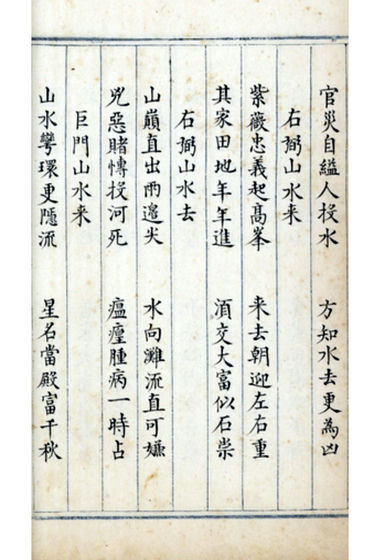 官災自縊人投水　方知水去更為凶
右弼山水来
紫薇忠義起髙峯　来去朝迎左右重
其家田地年年進　湏交大富似石崇
右弼山水去
山巔直出兩邉尖　水向灘流直可嫌
兇惡賭愽投河死　瘟瘟腫病一時占
巨門山水来
山水彎環更隱流　星名當殿富千秋